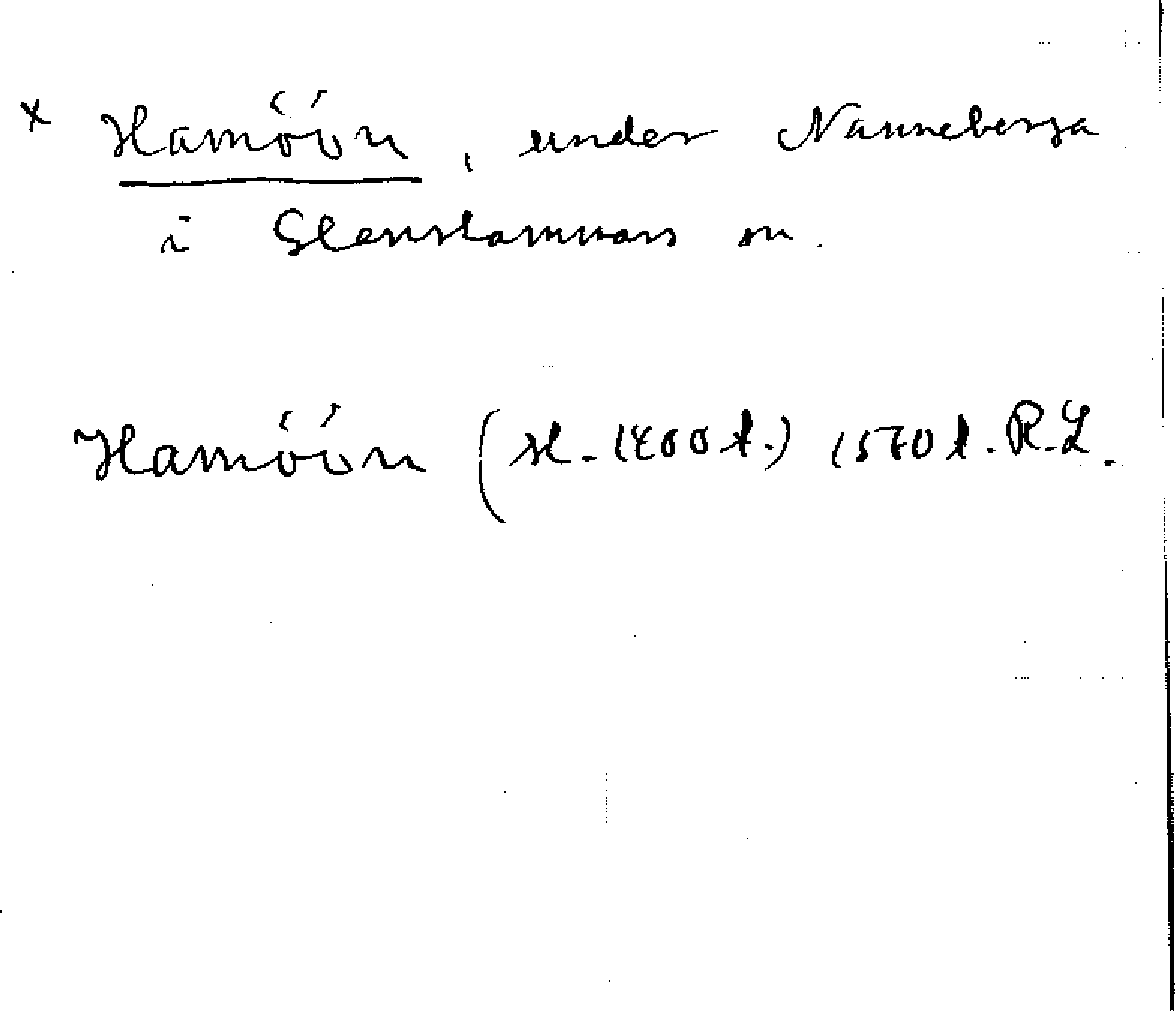 x Hamöön, under Nanneberga
i Glenshammars sn.
Hamöön (sl. 1400 t.) 1570 t. R.L.